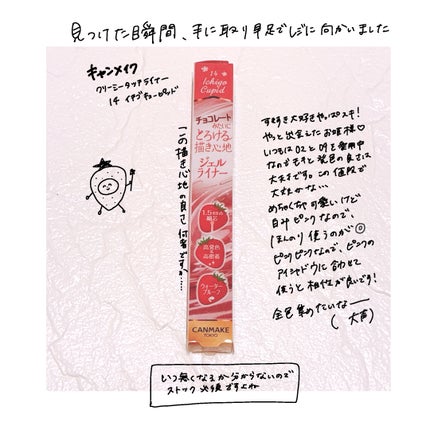 見つけた瞬間、手に取り早足でレジに向かいました
キャンメイク
クリーミータッチライナー
14 イチゴキューピッド
14
Ichigo
Cupid
チョコレート
みたいに
とろける
描き心地
ジェル
ライナー
1.5mmの
細芯
高発色
高密着
ウォーター
プルーフ
CANMAKE
TOKYO
この描き心地の良さ、何者ですか、、、、
すき好き大好きやっぱスキ！
やっと出会えたお姫様♡
いつも02と09を愛用中
なのでもぅと発色の良さは
大すきです。この値段で
大丈夫かな…
めちゃくちゃ可愛いけど
白みピンクなので、
ほんのり使うのが◎
ピンクピンクなんで、ピンクの
アイシャドウに合わせて
使うと相性が良いです！
全色集めたいなー
(大声)
いつ無くなるか分からないので
ストック必須ですよね